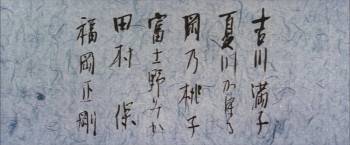 吉川 満子
夏川かほる
岡乃桃子
富士野
田村 保
福岡正剛